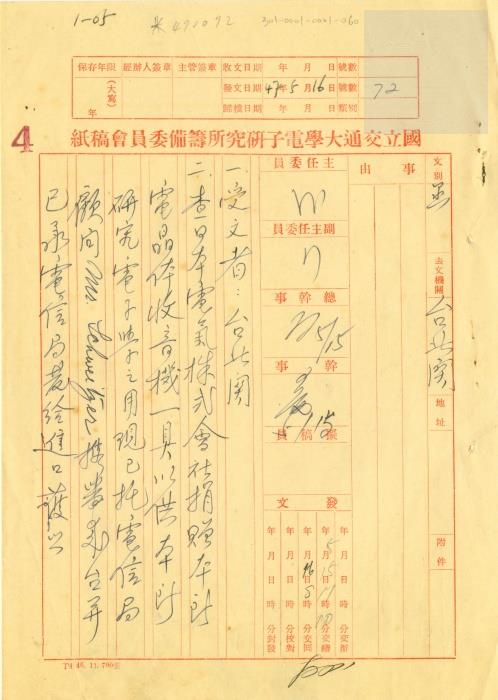 1-05
米 471092
301-0001-0001-060
保存年限 經辦人簽章 主管簽章 收文日期 年 月 日 號數
(大寫) 年 發文日期 47年5月16日 號數 72
歸檔日期 年 月 日 類別
4
國立交通大學電子研究所籌備委員會稿紙
文別 函
去文機關 台北關
地址
附件
事由
主任委員
副主任委員
總幹事 5/15
幹事 5/15
擬稿員
發文
5月15日 時 分交辦
年 月 日 時 分交繕
年 月 日 時 分交回
年 月 日 時 分校對
年 月 日 時 分封發
一、受文者：台北關
二、查日本電氣株式會社捐贈本所
電晶体收音機一具以供本所
研究電子學之用現已托電信局
顧問Mr. Schweitzer携帶來台并
已承電信局發給進口護照
T4 46. 11. 700張